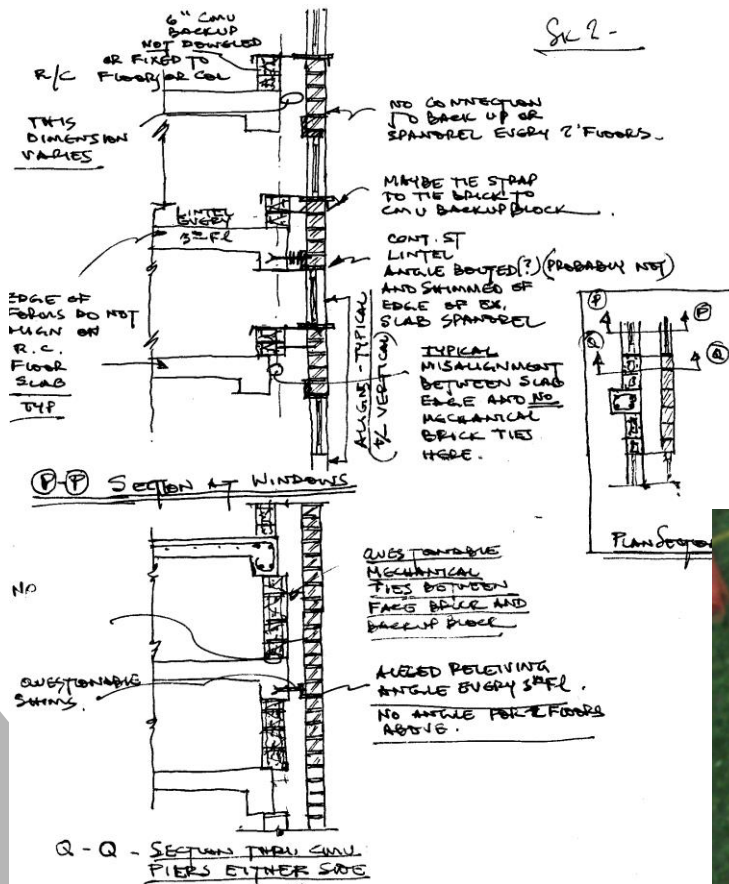 SK 2 -
6" CMU
BACKUP
NOT DOWELED
OR FIXED TO
FLOORS OR COL
R/C
THIS
DIMENSION
VARIES
NO CONNECTION
TO BACK UP OR
SPANDREL EVERY 2 FLOORS.
MAYBE TIE STRAP
TO TIE BRICK TO
CMU BACKUP BLOCK.
LINTEL
EVERY
3RD FL
CONT. ST
LINTEL
ANGLE BOLTED (?) (PROBABLY NOT)
AND SHIMMED OF
EDGE OF EX.
SLAB SPANDREL
EDGE OF
DO NOT
ALIGN ON
R.C.
FLOOR
SLAB
TYP
ALIGNS - TYPICAL
VERTICAL
TYPICAL
MISALIGNMENT
BETWEEN SLAB
EDGE AND NO
MECHANICAL
BRICK TIES
HERE.
P P
Q Q
PLAN SECTIO
P-P SECTION AT WINDOWS
NO
QUESTIONABLE
MECHANICAL
TIES BETWEEN
FACE BRICK AND
BACKUP BLOCK
QUESTIONABLE
SHIMS.
ALEGED RELEIVING
ANGLE EVERY 3RD FL.
NO ANGLE FOR 2 FLOORS
ABOVE.
Q - Q - SECTION THRU CMU
PIERS EITHER SIDE